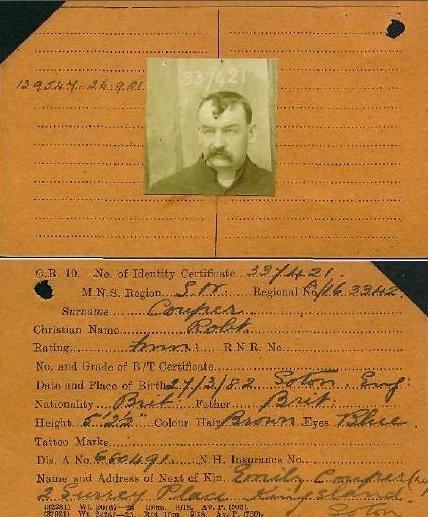 129547. 26.9.21.
337421
C.R. 10. No. of Identity Certificate 337421.
M.N.S. Region S.W. Regional No. 3342
Surname Couper
Christian Name Robt
Rating R.N.R. No.
No. and Grade of B/T Certificate
Date and Place of Birth 27/2/82 Soton. Eng
Nationality Brit Father Brit
Height 5'2½ Colour Hair Brown Eyes Blue
Tattoo Marks
Dis. A No. 660491. N.H. Insurance No.
Name and Address of Next of Kin Emily Couper
2 Surrey Place Kingsland
Soton